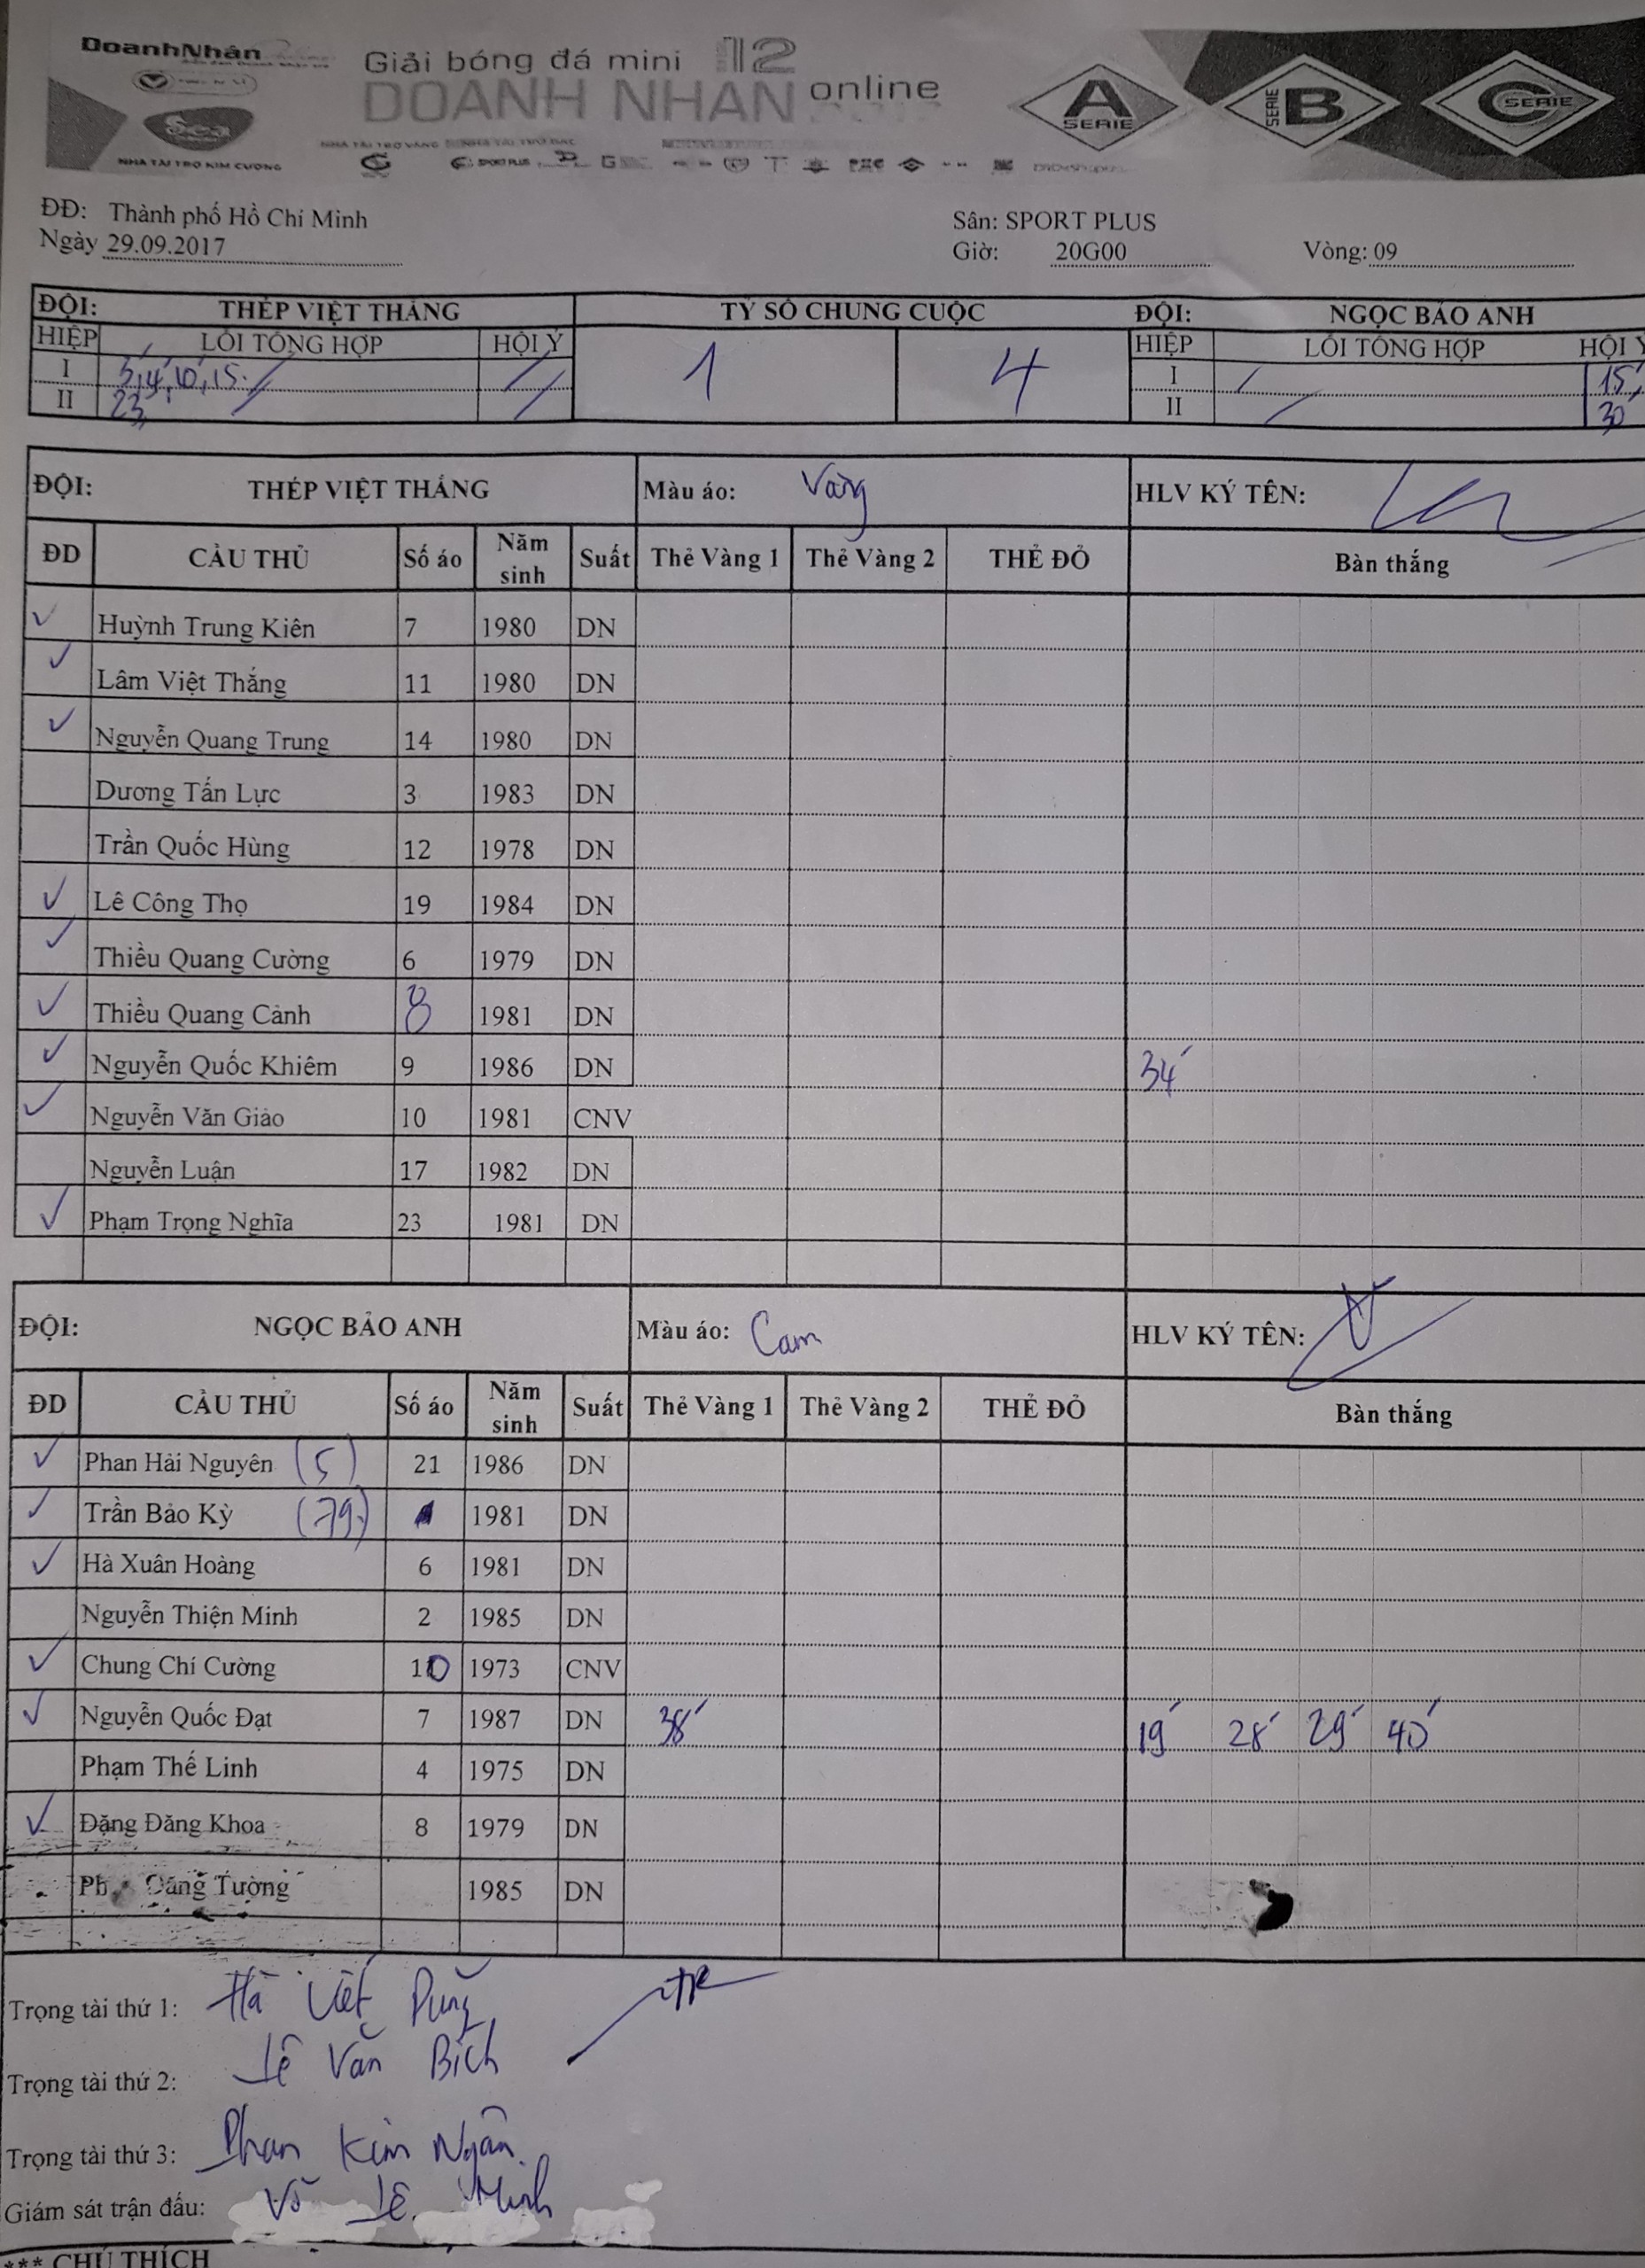 DoanhNhân
Giải bóng đá mini 12
DOANH NHAN online
Sea
NHÀ TÀI TRỢ KIM CƯƠNG
SPORT PLUS
A SERIE
SERIE B
C SERIE
ĐĐ: Thành phố Hồ Chí Minh Sân: SPORT PLUS
Ngày 29.09.2017 Giờ: 20G00 Vòng: 09
ĐỘI: THÉP VIỆT THẮNG TỶ SỐ CHUNG CUỘC ĐỘI: NGỌC BẢO ANH
HIỆP LỖI TỔNG HỢP HỘI Ý 1 4 HIỆP LỖI TỔNG HỢP HỘI Ý
I 3', 4', 10', 15' I 15'
II 23' II 30'
ĐỘI: THÉP VIỆT THẮNG Màu áo: Vàng HLV KÝ TÊN:
ĐD CẦU THỦ Số áo Năm sinh Suất Thẻ Vàng 1 Thẻ Vàng 2 THẺ ĐỎ Bàn thắng
✓ Huỳnh Trung Kiên 7 1980 DN
✓ Lâm Việt Thắng 11 1980 DN
✓ Nguyễn Quang Trung 14 1980 DN
Dương Tấn Lực 3 1983 DN
Trần Quốc Hùng 12 1978 DN
✓ Lê Công Thọ 19 1984 DN
✓ Thiều Quang Cường 6 1979 DN
✓ Thiều Quang Cảnh 8 1981 DN
✓ Nguyễn Quốc Khiêm 9 1986 DN 34'
✓ Nguyễn Văn Giảo 10 1981 CNV
Nguyễn Luận 17 1982 DN
✓ Phạm Trọng Nghĩa 23 1981 DN
ĐỘI: NGỌC BẢO ANH Màu áo: Cam HLV KÝ TÊN:
ĐD CẦU THỦ Số áo Năm sinh Suất Thẻ Vàng 1 Thẻ Vàng 2 THẺ ĐỎ Bàn thắng
✓ Phan Hải Nguyên (5) 21 1986 DN
✓ Trần Bảo Kỳ (79) 1981 DN
✓ Hà Xuân Hoàng 6 1981 DN
Nguyễn Thiện Minh 2 1985 DN
✓ Chung Chí Cường 10 1973 CNV
✓ Nguyễn Quốc Đạt 7 1987 DN 38' 19' 28' 29' 40'
Phạm Thế Linh 4 1975 DN
✓ Đặng Đăng Khoa 8 1979 DN
Tường 1985 DN
Trọng tài thứ 1: Hà Việt Dũng
Trọng tài thứ 2: Lê Văn Bích
Trọng tài thứ 3: Phan Kim Ngân
Giám sát trận đấu: Võ Lê Minh
*** CHÚ THÍCH